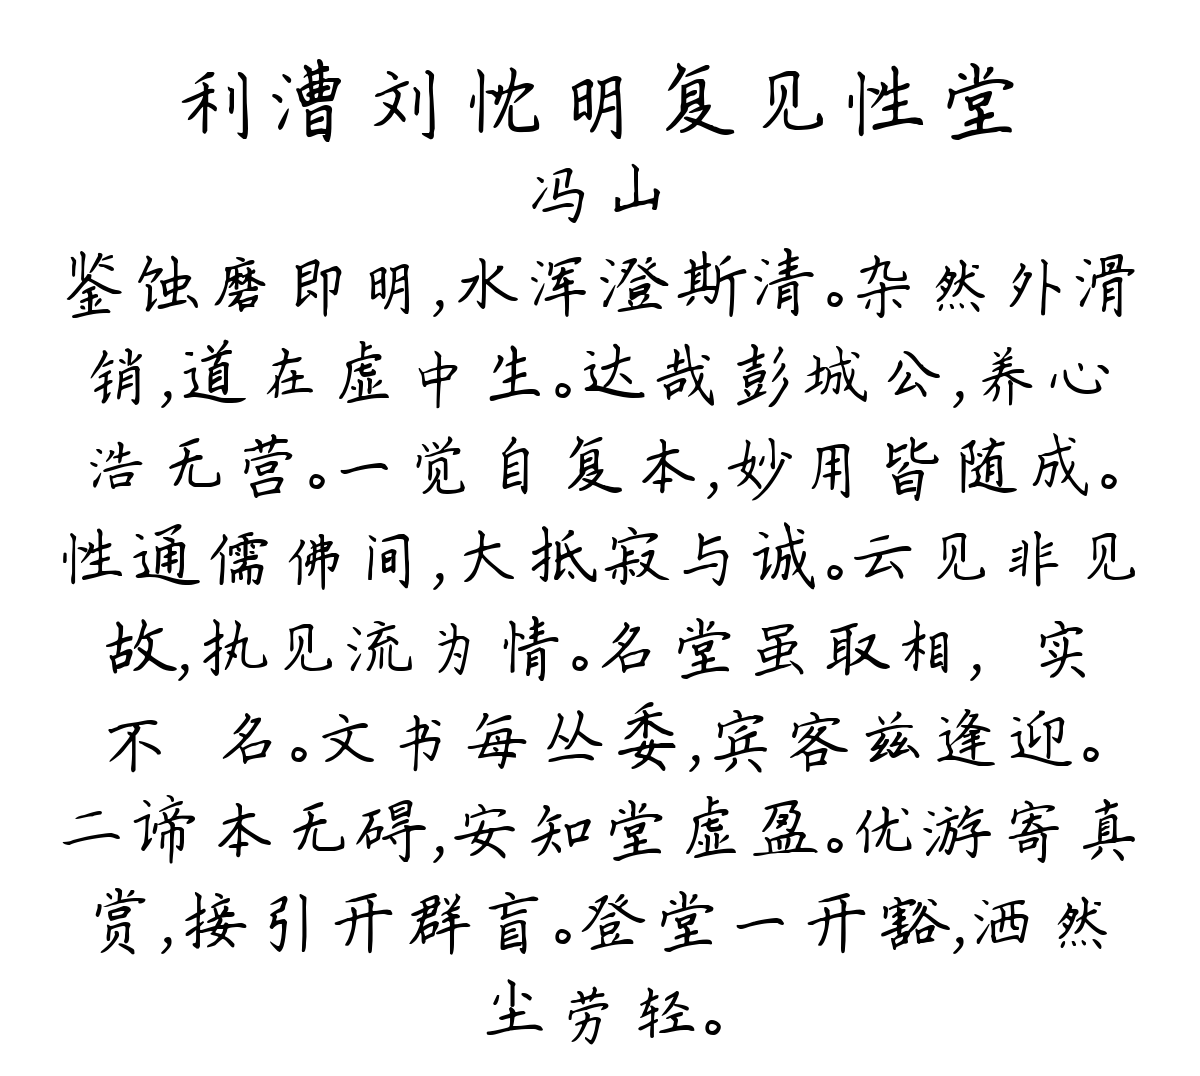 利漕刘忱明复见性堂
冯山
鉴蚀磨即明,水浑澄斯清。杂然外滑
销,道在虚中生。达哉彭城公,养心
浩无营。一觉自复本,妙用皆随成。
性通儒佛间,大抵寂与诚。云见非见
故,执见流为情。名堂虽取相, 实
不 名。文书每丛委,宾客兹逢迎。
二谛本无碍,安知堂虚盈。优游寄真
赏,接引开群盲。登堂一开豁,洒然
尘劳轻。